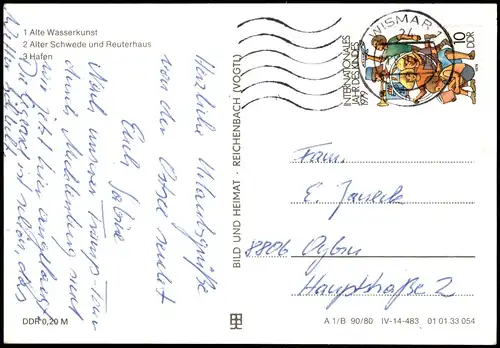 1 Alte Wasserkunst
2 Alter Schwede und Reuterhaus
3 Hafen
Herzliche Urlaubsgrüße
von der Ostsee sendet
Euch Sabine
Nach unserer Tramp-Tour
durch Mecklenburg sind
wir jetzt hier angelangt.
Die Gegend ist schön, das
DDR 0,20 M
BILD UND HEIMAT · REICHENBACH (VOGTL)
WISMAR 1
INTERNATIONALES
JAHR DES KINDES
1979
10
DDR
Fam.
E. Janeck
8806 Oybin
Hauptstraße 2
A 1/B 90/80 IV-14-483 01 01 33 054